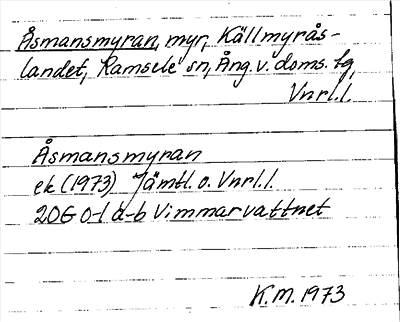 Åsmansmyran, myr, Källmyrås-
landet, Ramsele sn, Ång. v. doms. fg,
Vnrl. l.
Åsmansmyran
ek (1973) Jämtl. o. Vnrl. l.
20G 0-1 a-b Vimmarvattnet
K.M. 1973